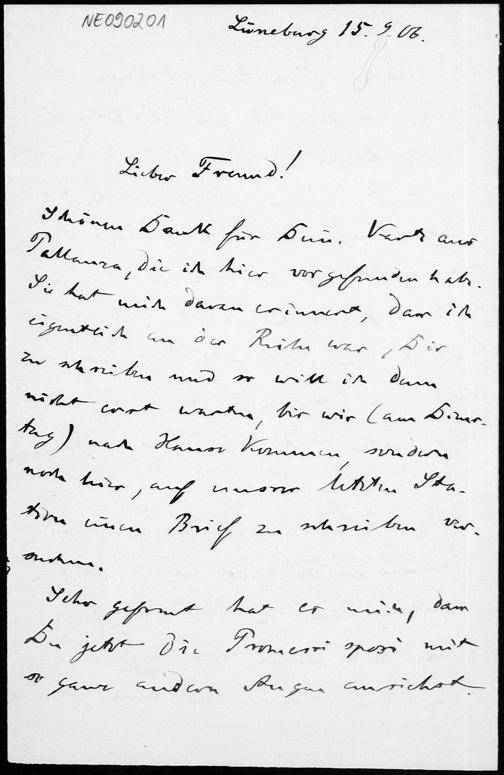 NE090201
Lüneburg 15.9.06.
Lieber Freund!
Schönen Dank für Dein. Karte aus
Pallanza, die ich hier vorgefunden habe.
Sie hat mich daran erinnert, dass ich
eigentlich an der Reihe war, Dir
zu schreiben und so will ich denn
nicht erst warten, bis wir (am Diens-
tag) nach Hause kommen, sondern
noch hier, auf unsrer letzten Sta-
tion einen Brief zu schreiben ver-
suchen.
Sehr gefreut hat es mich, dass
Du jetzt die Promessi sposi mit
so ganz andern Augen ansiehst.